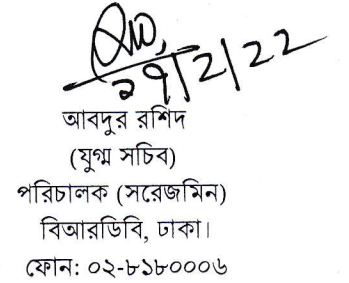 ২৭/২/২২
আবদুর রশিদ
(যুগ্ম সচিব)
পরিচালক (সরেজমিন)
বিআরডিবি, ঢাকা।
ফোন: ০২-৮১৮০০০৬